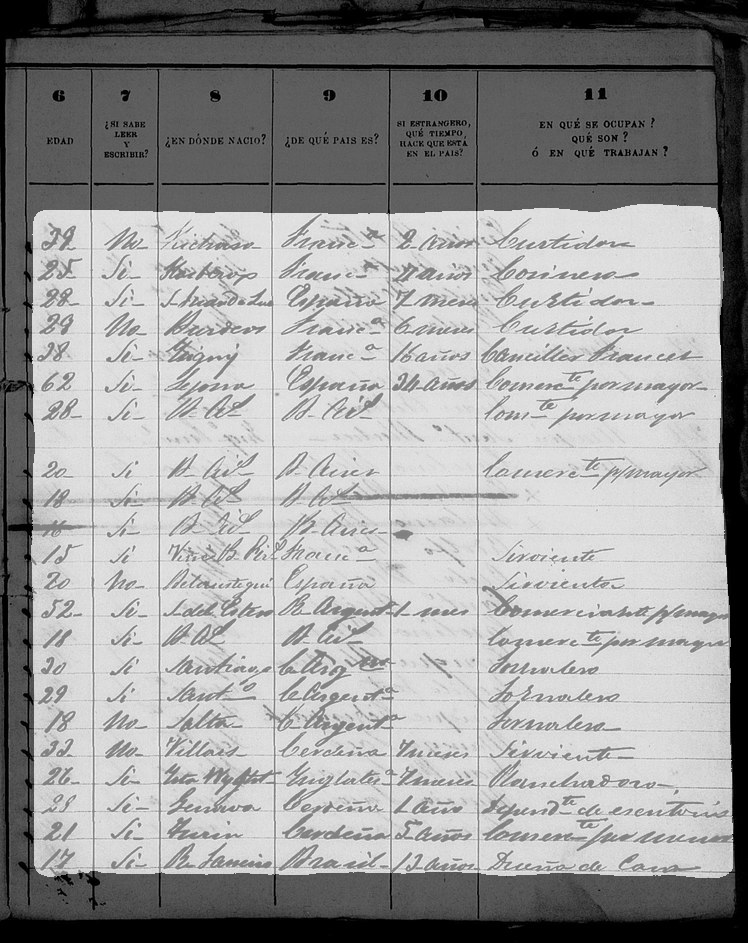 6 7 8 9 10 11
EDAD ¿SI SABE LEER Y ESCRIBIR? ¿EN DÓNDE NACIÓ? ¿DE QUÉ PAIS ES? SI ESTRANGERO, QUÉ TIEMPO HACE QUE ESTÁ EN EL PAIS? EN QUÉ SE OCUPAN? QUÉ SON? Ó EN QUÉ TRABAJAN?
39 No Franc.a 2 años Curtidor
25 Si Franc.a años Cosinero
28 Si España 7 meses Curtidor
29 No Burdeos Franc.a 6 meses Curtidor
38 Si Franc.a 16 años Canciller Frances
62 Si España 34 años Comerc.te por mayor
28 Si B. Ai.s B. Ai.s Com.te por mayor
20 Si B. Ai.s B. Aires Comerc.te p/mayor
18 Si B. A.s B. A.s
16 Si B. Ai.s B. Aires
15 Si B. Ai.s Franc.a Sirviente
20 No España Sirvienta
52 Si S. del Estero R. Argent.a 1 mes Comerciante p/mayor
18 Si B. A.s B. Ai.s Comerc.te por mayor
30 Si Santiago C. Arg.na Jornalero
29 Si Sant.o C. Argent.a Jornalero
18 No Salta C. Argent.a Jornalero
33 No Cerdeña 7 meses Sirviente
26 Si Inglate.a 7 meses Planchadora
28 Si Genova Cerdeña 1 año Depend.te de escritorio
21 Si Turin Cerdeña 5 años Comerc.te por menor
17 Si R. Janeiro Brasil 13 años Dueña de Casa